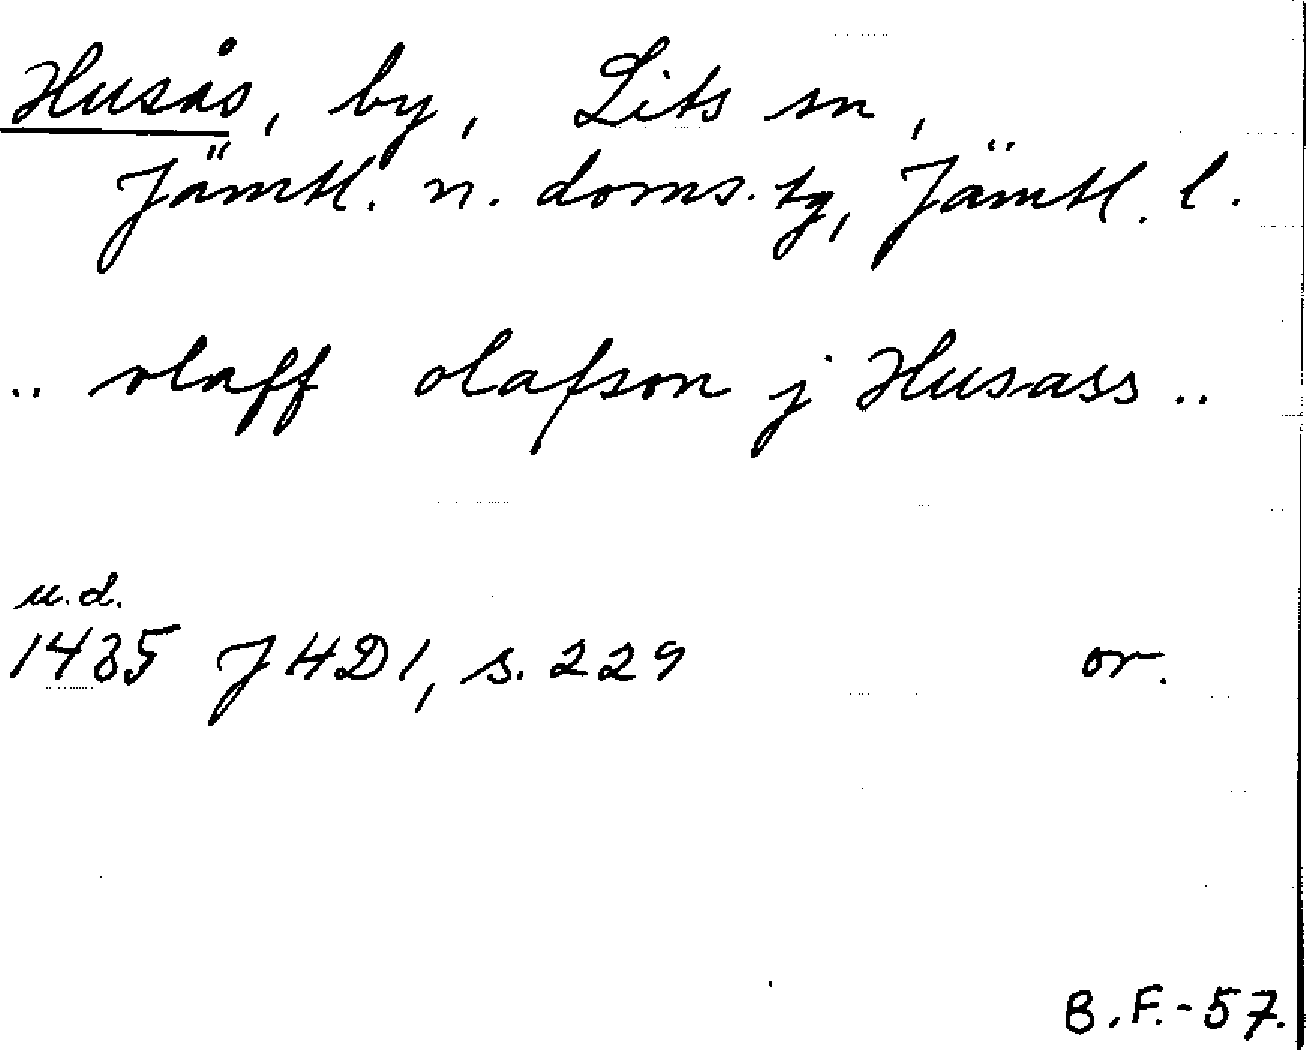 Husås, by, Lits sn,
Jämtl. n. doms. tg, Jämtl. l.
.. olaff olafson j Husass ..
u.d.
1435 JHD1, s. 229 or.
B.F.-57.